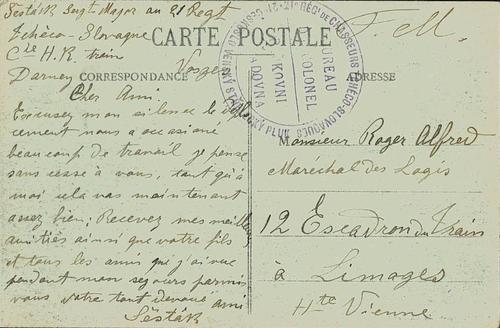 Šesták Sergt Major au 21 Regt
Tchéco-Slovaque
Cie H.R. train
Darney Vosges
F.M.
CARTE POSTALE
CORRESPONDANCE
ADRESSE
21e RÉGt DE CHASSEURS TCHÉCO-SLOVAQUES
BUREAU
COLONEL
KOVNI
Cher Ami.
Excusez mon silence le dépla
cement nous a occasioné
beaucoup de travail je pense
sans cesse à vous, tant qu'à
moi cela vas maintenant
assez bien; Recevez mes meilleures
amitiés ainsi que votre fils
et tous les amis que j'ai vue
pendant mon séjours parmis
vous votre tout devoué ami
Šesták
Monsieur Roger Alfred
Maréchal des Logis
12 Escadron du Train
à Limoges
Hte Vienne